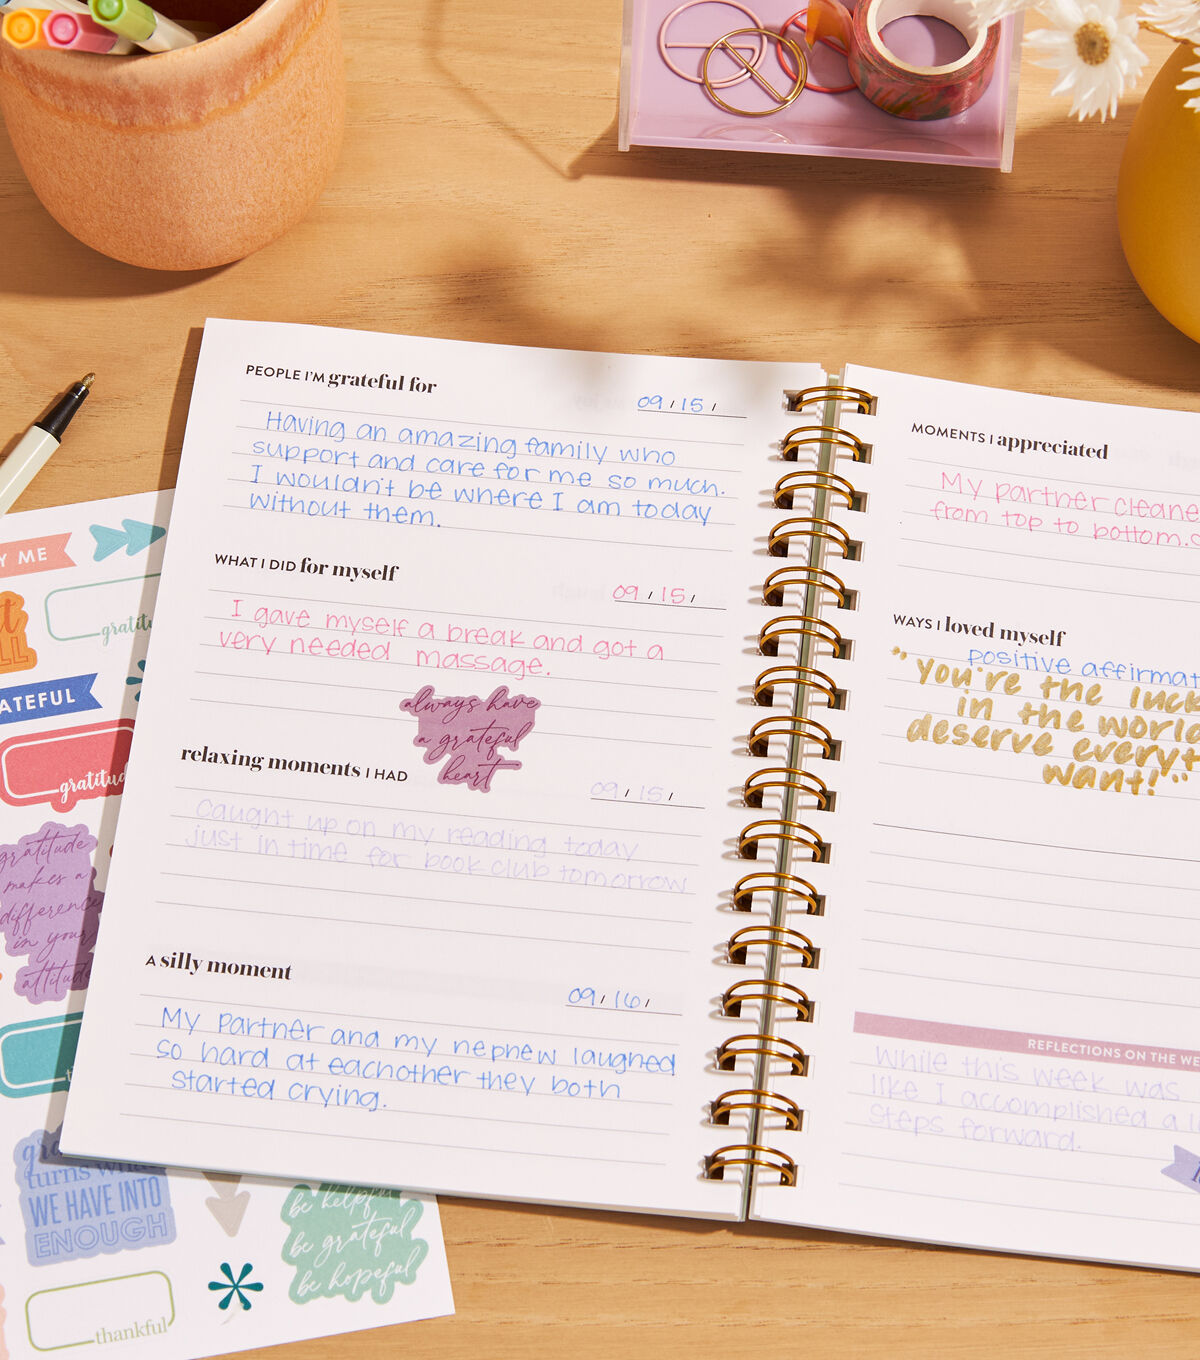 PEOPLE I'M grateful for
09 / 15 /
Having an amazing family who
support and care for me so much.
I wouldn't be where I am today
without them.
WHAT I DID for myself
09 / 15 /
I gave myself a break and got a
very needed massage.
always have
a grateful
heart
relaxing moments I HAD
09 / 15 /
Caught up on my reading today
just in time for book club tomorrow
A silly moment
09 / 16 /
My partner and my nephew laughed
so hard at eachother they both
started crying.
MOMENTS I appreciated
My partner
from top to bottom.
WAYS I loved myself
positive
"You're the
in the
deserve
want!"
REFLECTIONS ON THE
While this week was
like I accomplished a
steps forward.
ME
GRATEFUL
gratitude
gratitude
makes a
difference
in your
attitude
turns
WE HAVE INTO
ENOUGH
be helpful
be grateful
be hopeful
thankful